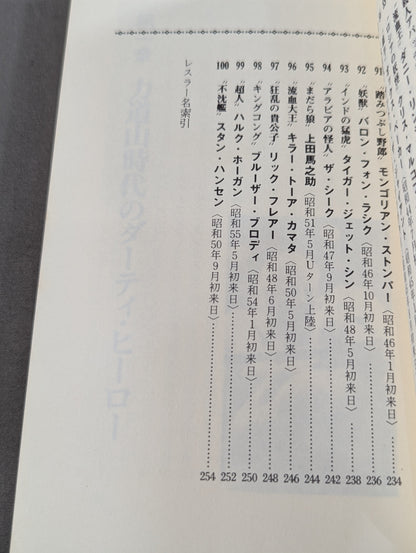 91 "踏みつぶし野郎" モンゴリアン・ストンパー〈昭和46年1月初来日〉 234
92 "妖獣" バロン・フォン・ラシク〈昭和46年10月初来日〉 236
93 "インドの猛虎" タイガー・ジェット・シン〈昭和48年5月初来日〉 238
94 "アラビアの怪人" ザ・シーク〈昭和47年9月初来日〉 242
95 "まだら狼" 上田馬之助〈昭和51年5月Uターン上陸〉 244
96 "流血大王" キラー・トーア・カマタ〈昭和50年5月初来日〉 246
97 "狂乱の貴公子" リック・フレアー〈昭和48年6月初来日〉 248
98 "キングコング" ブルーザー・ブロディ〈昭和54年1月初来日〉 250
99 "超人" ハルク・ホーガン〈昭和55年5月初来日〉 252
100 "不沈艦" スタン・ハンセン〈昭和50年9月初来日〉 254
レスラー名索引